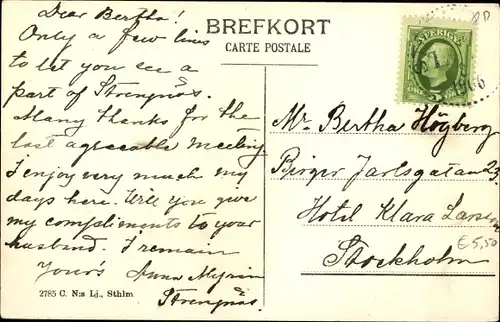 BREFKORT
CARTE POSTALE
Dear Bertha!
Only a few lines
to let you see a
part of Strengnäs.
Many thanks for the
last agreeable meeting
I enjoy very much my
days here. Will you give
my compliments to your
husband. I remain
Yours Anna
Strengnäs.
2785 C. N:s Lj., Sthlm
SVERIGE
1906
8D
Mr Bertha Högberg
Birger Jarlsgatan 23
Hotel Klara Larsson
Stockholm
€5,50